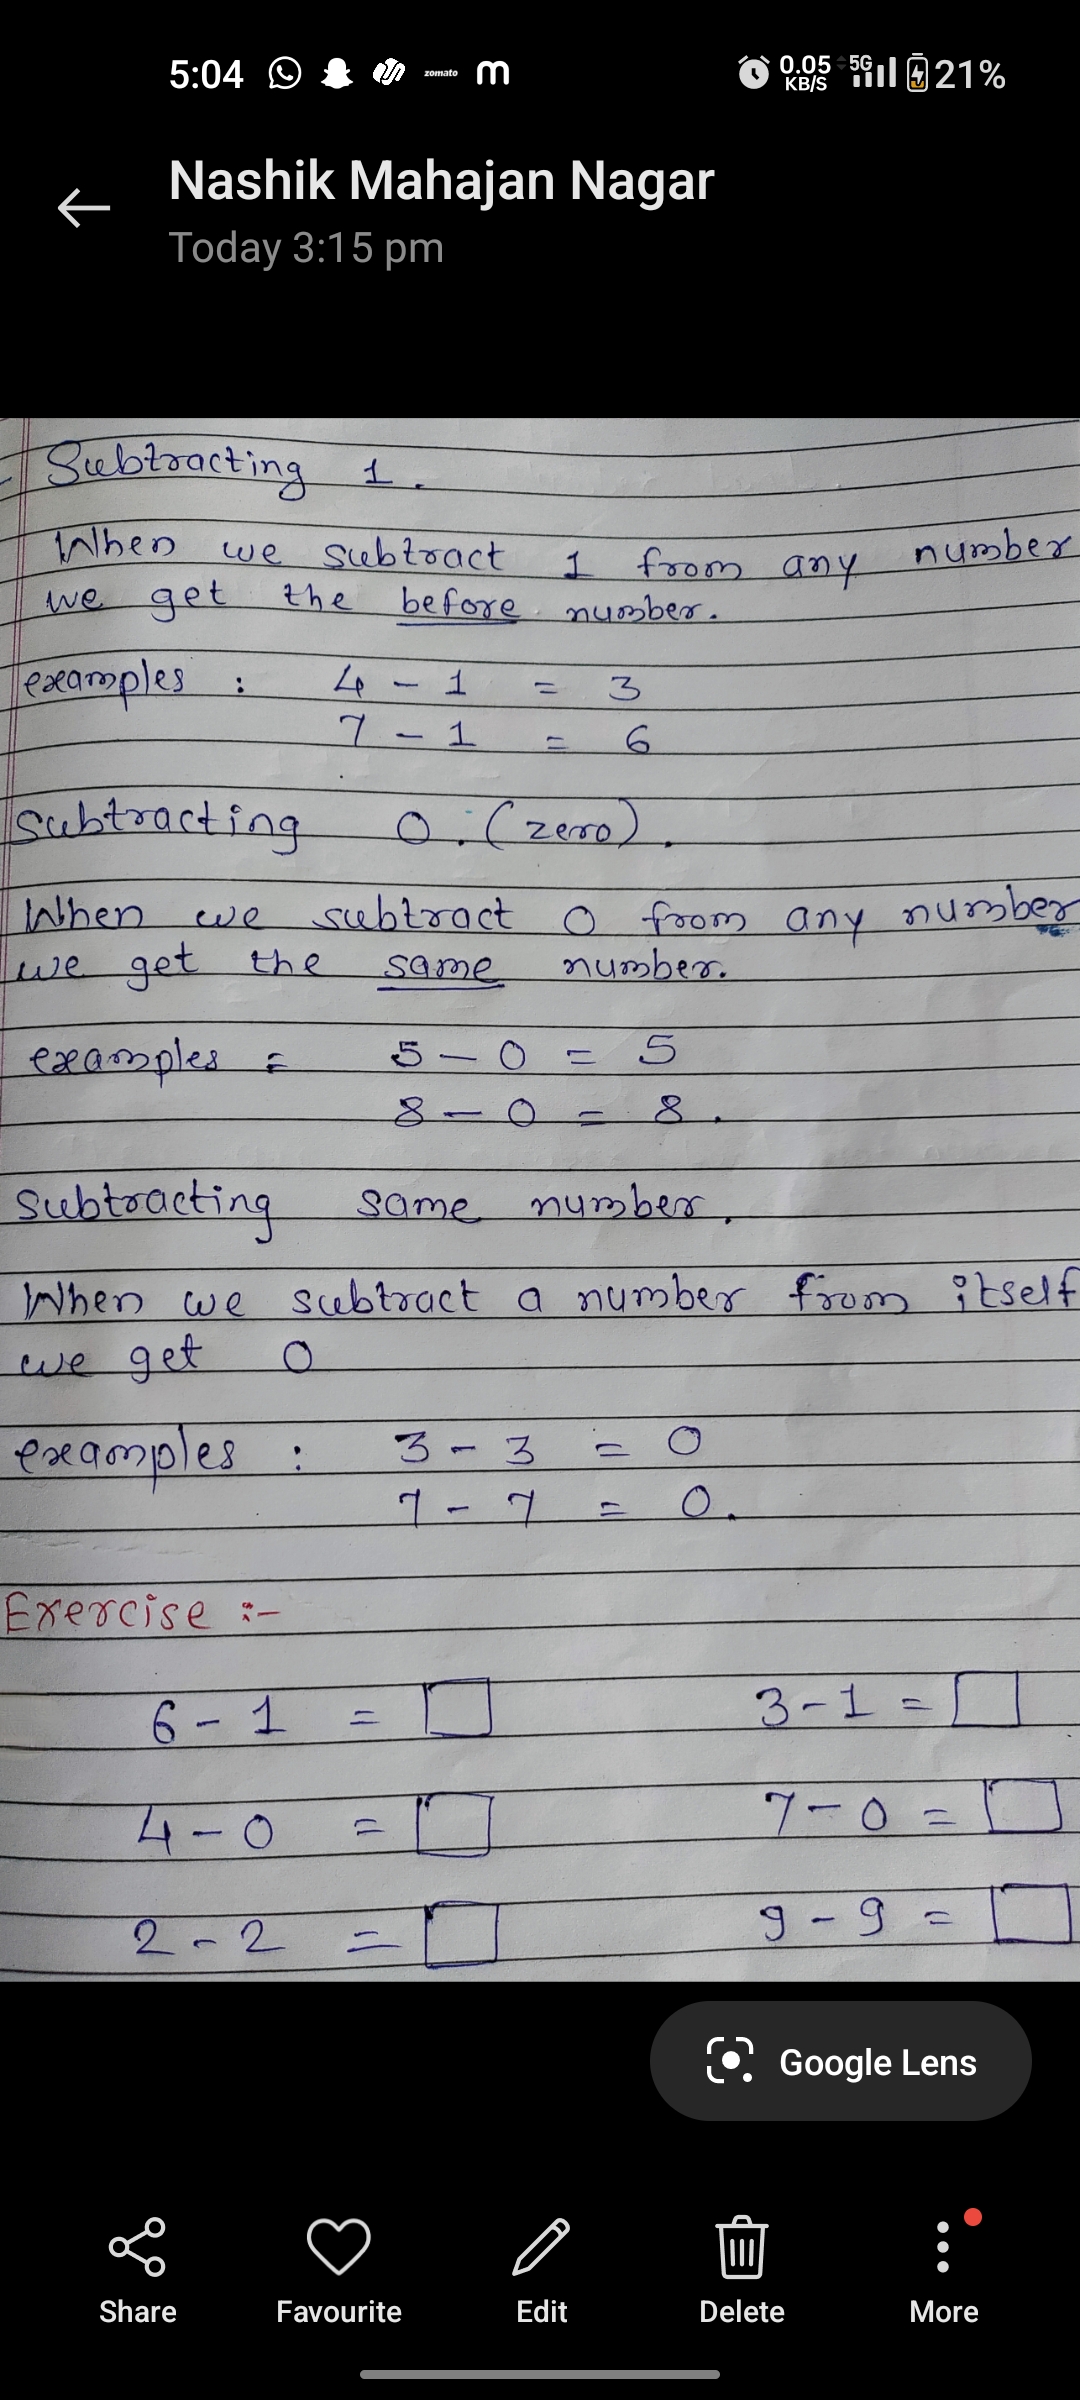 5:04 zomato m 0.05 KB/S 5G 21%
Nashik Mahajan Nagar
Today 3:15 pm
Subtracting 1.
When we subtract 1 from any number
we get the before number.
examples : 4 - 1 = 3
7 - 1 = 6
Subtracting 0. (zero).
When we subtract 0 from any number
we get the same number.
examples = 5 - 0 = 5
8 - 0 = 8.
Subtracting same number.
When we subtract a number from itself
we get 0
examples : 3 - 3 = 0
7 - 7 = 0.
Exercise :-
6 - 1 = □ 3 - 1 = □
4 - 0 = □ 7 - 0 = □
2 - 2 = □ 9 - 9 = □
Google Lens
Share Favourite Edit Delete More